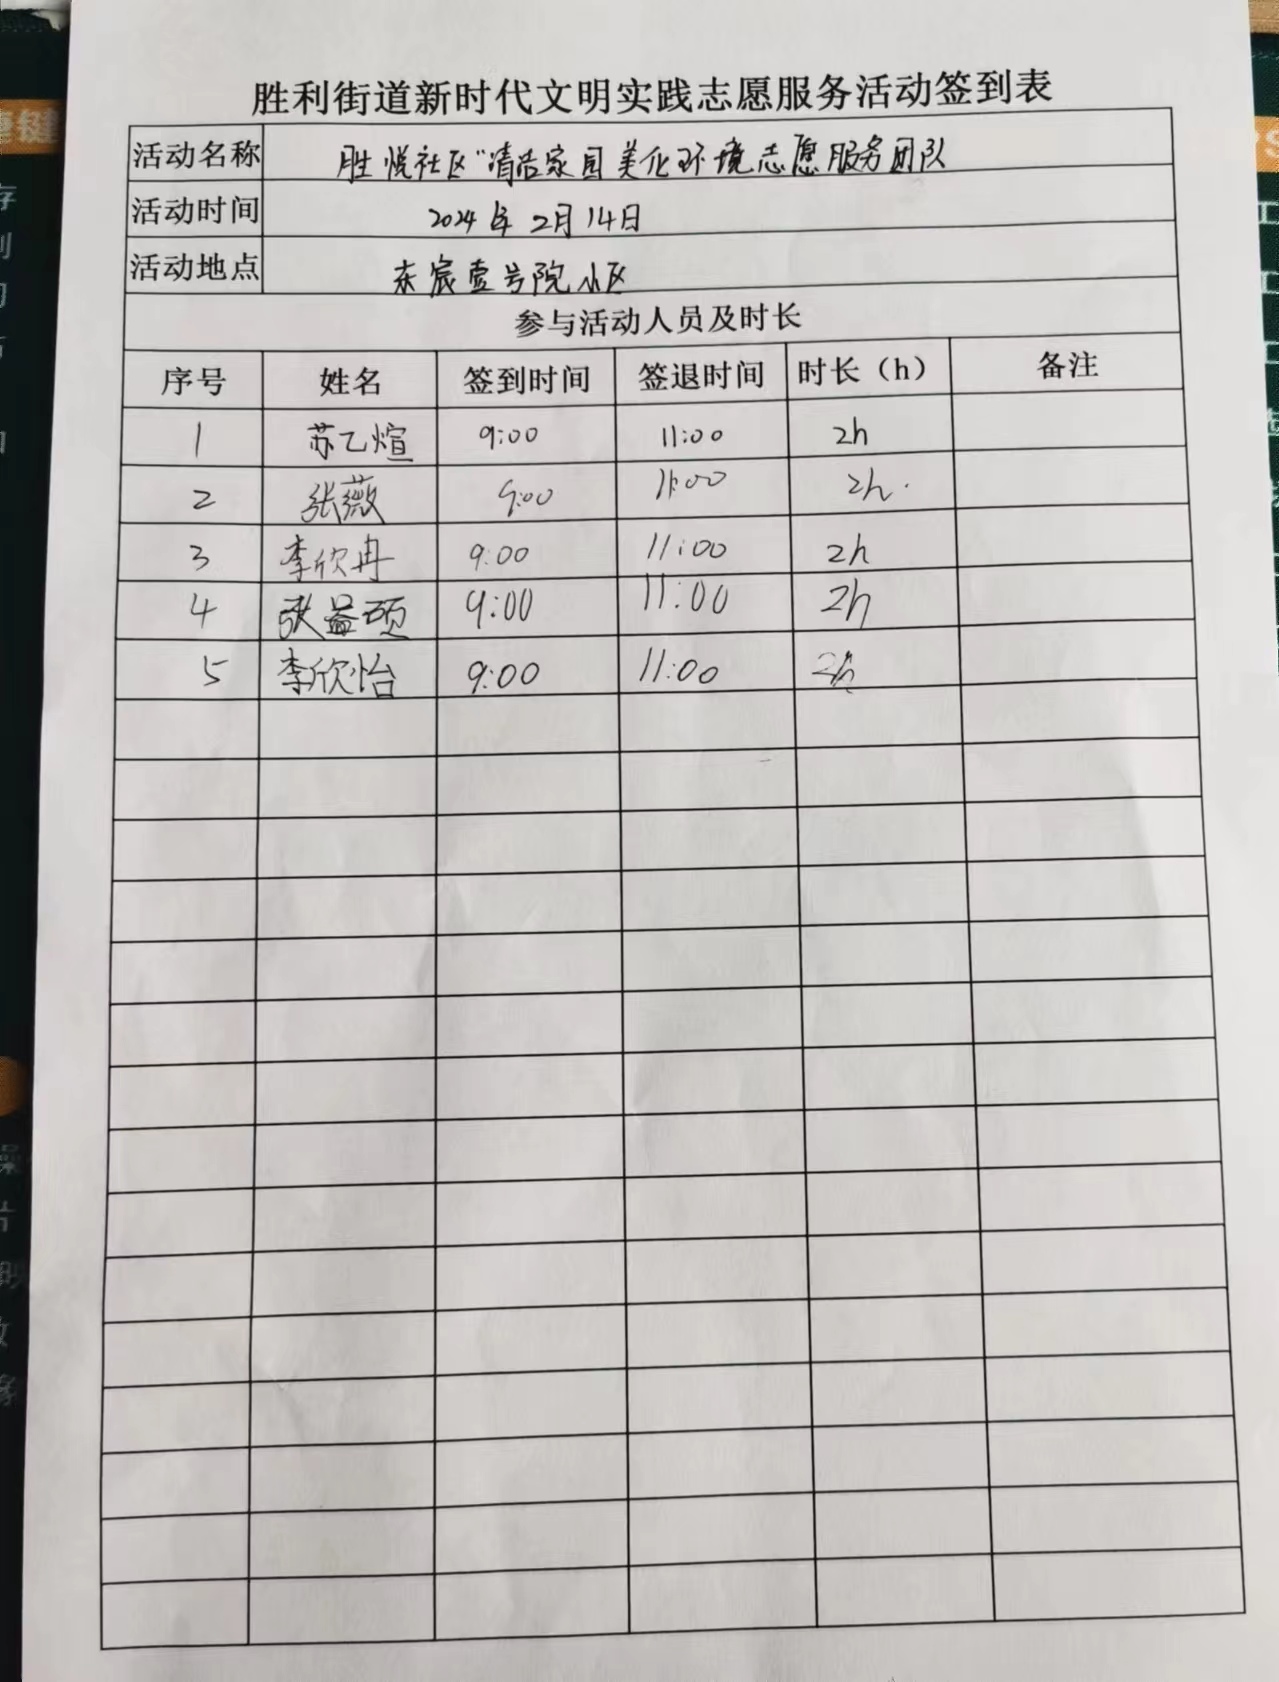 胜利街道新时代文明实践志愿服务活动签到表
活动名称 胜悦社区"清洁家园美化环境志愿服务团队
活动时间 2024年2月14日
活动地点 东宸壹号院小区
参与活动人员及时长
序号 姓名 签到时间 签退时间 时长（h） 备注
1 苏乙煊 9:00 11:00 2h
2 张薇 9:00 11:00 2h.
3 李欣冉 9:00 11:00 2h
4 张益硕 9:00 11:00 2h
5 李欣怡 9:00 11:00 2h